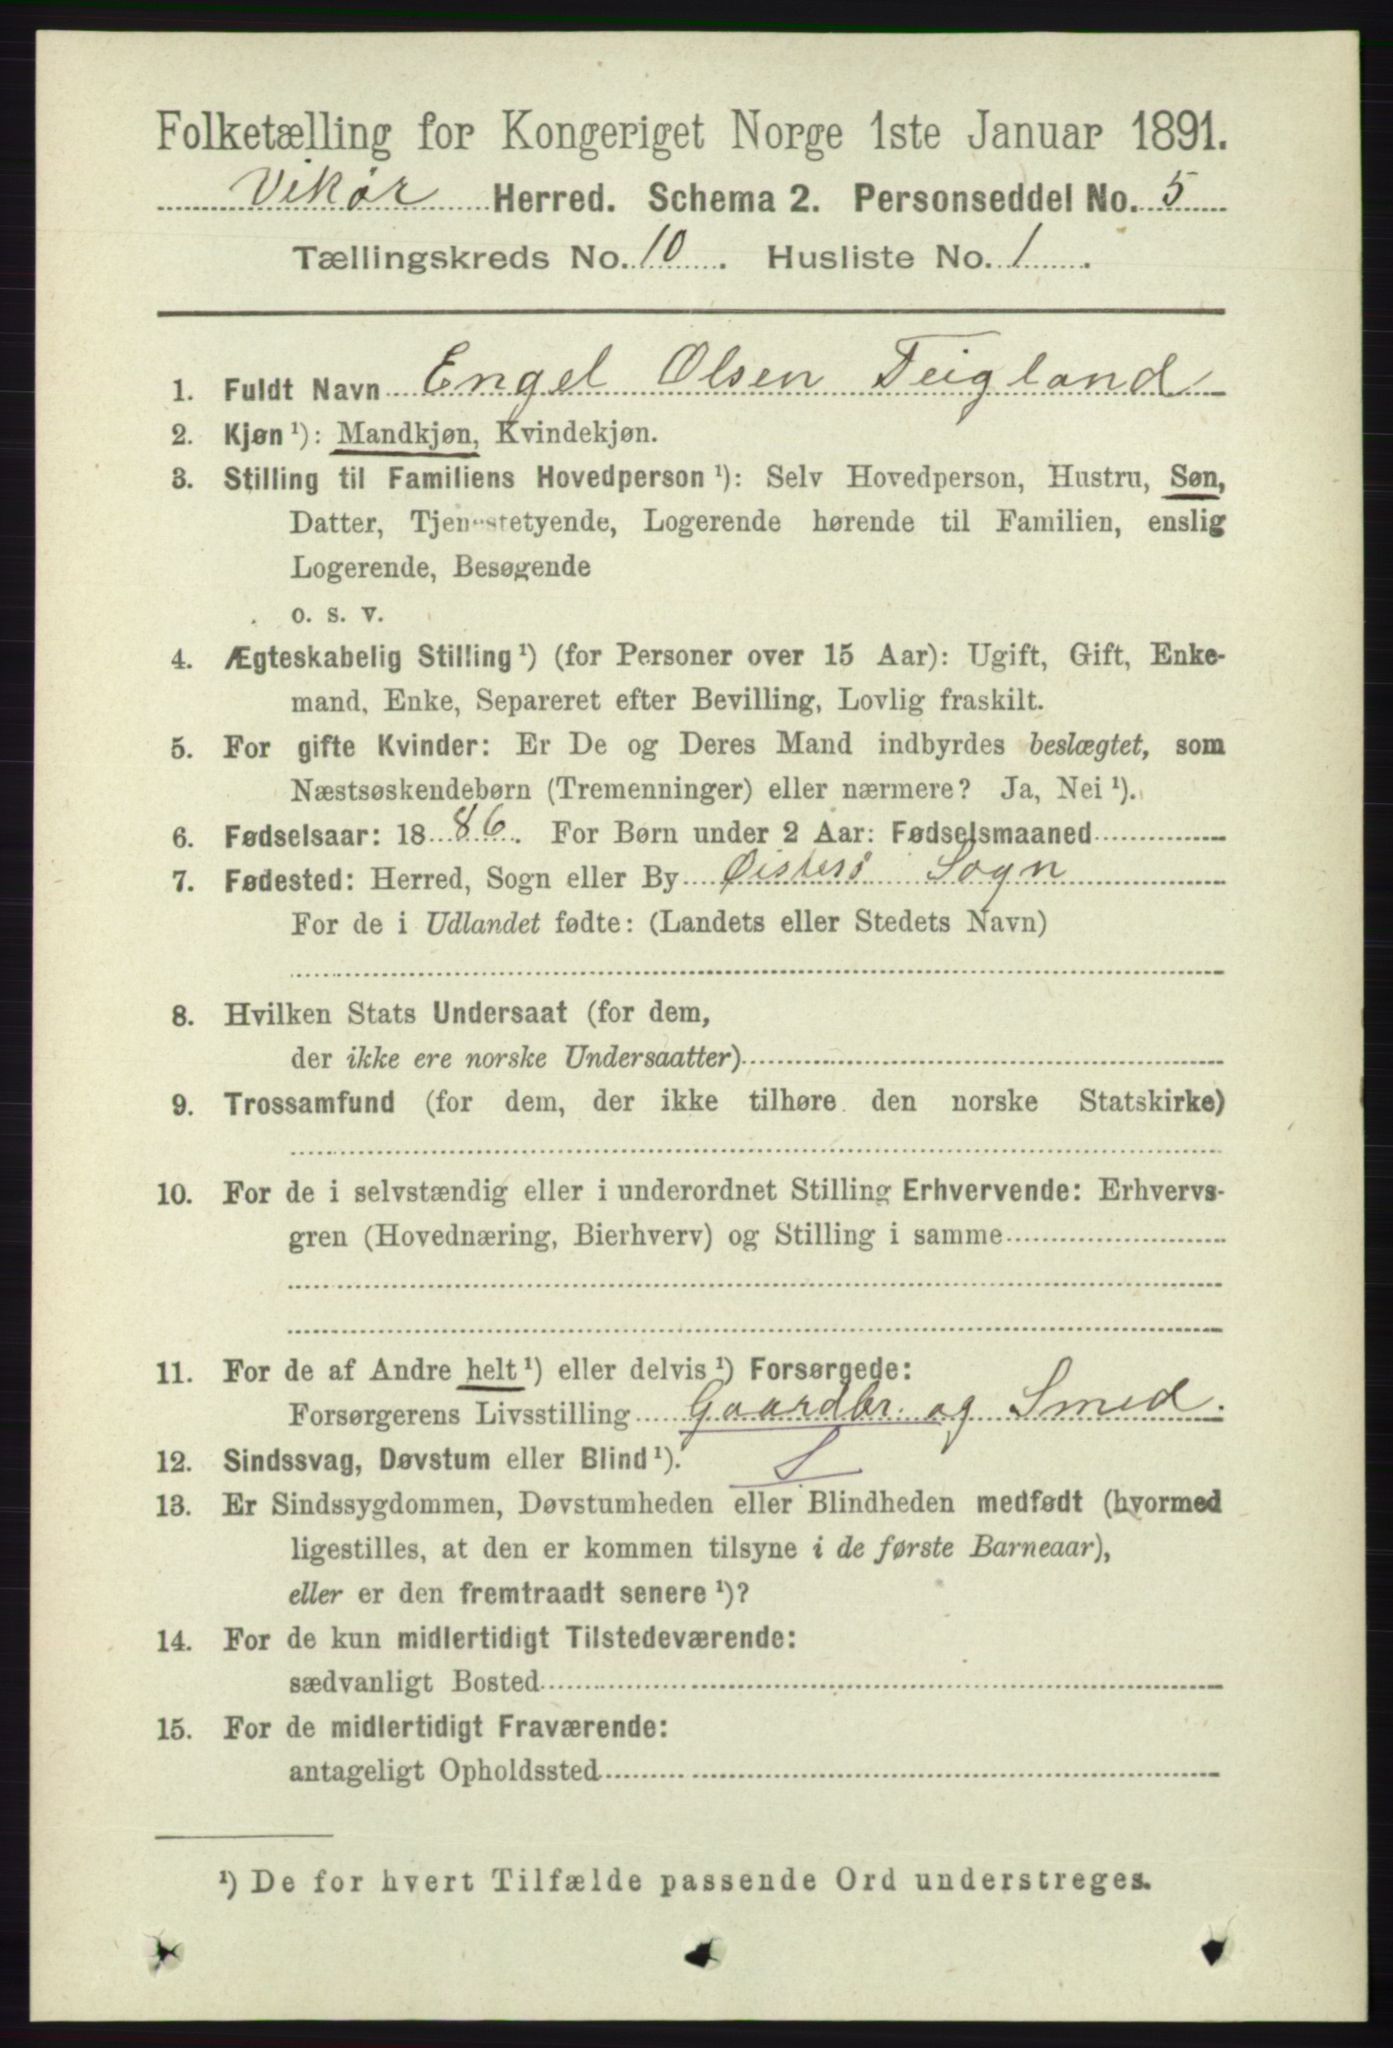 Folketælling for Kongeriget Norge 1ste Januar 1891.
Vikør Herred. Schema 2. Personseddel No. 5
Tællingskreds No. 10. Husliste No. 1.
1. Fuldt Navn Engel Olsen Teigland
2. Kjøn ¹): Mandkjøn, Kvindekjøn.
3. Stilling til Familiens Hovedperson ¹): Selv Hovedperson, Hustru, Søn,
Datter, Tjenestetyende, Logerende hørende til Familien, enslig
Logerende, Besøgende
o. s. v.
4. Ægteskabelig Stilling ¹) (for Personer over 15 Aar): Ugift, Gift, Enke-
mand, Enke, Separeret efter Bevilling, Lovlig fraskilt.
5. For gifte Kvinder: Er De og Deres Mand indbyrdes beslægtet, som
Næstsøskendebørn (Tremenninger) eller nærmere? Ja, Nei ¹).
6. Fødselsaar: 1886. For Børn under 2 Aar: Fødselsmaaned
7. Fødested: Herred, Sogn eller By Øistesø Sogn
For de i Udlandet fødte: (Landets eller Stedets Navn)
8. Hvilken Stats Undersaat (for dem,
der ikke ere norske Undersaatter)
9. Trossamfund (for dem, der ikke tilhøre den norske Statskirke)
10. For de i selvstændig eller i underordnet Stilling Erhvervende: Erhvervs-
gren (Hovednæring, Bierhverv) og Stilling i samme
11. For de af Andre helt ¹) eller delvis ¹) Forsørgede:
Forsørgerens Livsstilling Gaardbr. og Smed.
12. Sindssvag, Døvstum eller Blind ¹).
13. Er Sindssygdommen, Døvstumheden eller Blindheden medfødt (hvormed
ligestilles, at den er kommen tilsyne i de første Barneaar),
eller er den fremtraadt senere ¹)?
14. For de kun midlertidigt Tilstedeværende:
sædvanligt Bosted
15. For de midlertidigt Fraværende:
antageligt Opholdssted
¹) De for hvert Tilfælde passende Ord understreges.